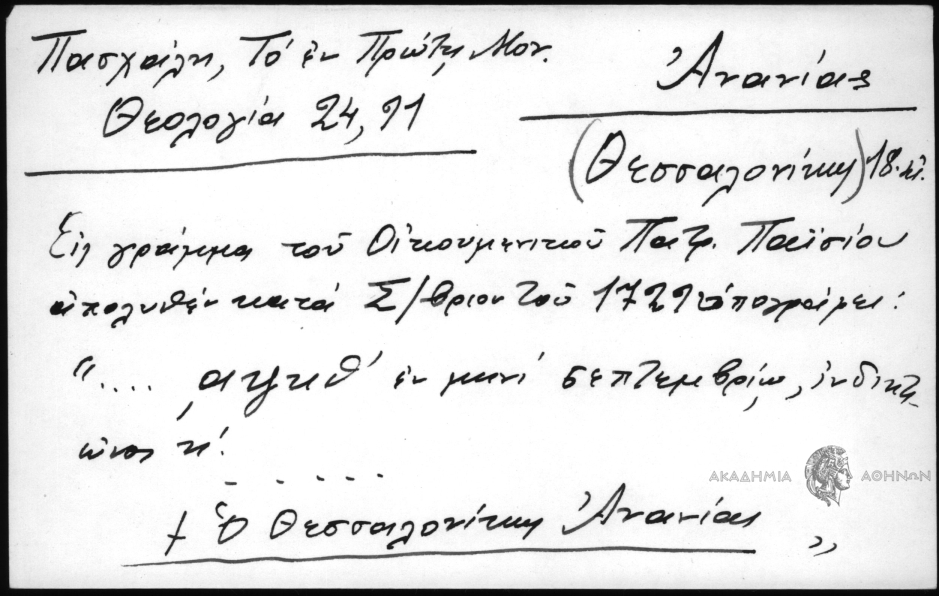 Πασχάλη, Τό ἐν Πρώτῃ Μον.
Θεολογία 24, 91
Ἀνανίας
(Θεσσαλονίκης) 18. αἰ.
Εἰς γράμμα τοῦ Οἰκουμενικοῦ Πατρ. Παϊσίου
ἀπολυθέν κατά Σ/βριον τοῦ 1729 ὑπογράφει:
".... ͵αψκθ' ἐν μηνί σεπτεμβρίῳ, ἰνδικτι-
ῶνος η'.
. . . . . .
† Ὁ Θεσσαλονίκης Ἀνανίας "
ΑΚΑΔΗΜΙΑ ΑΘΗΝΩΝ